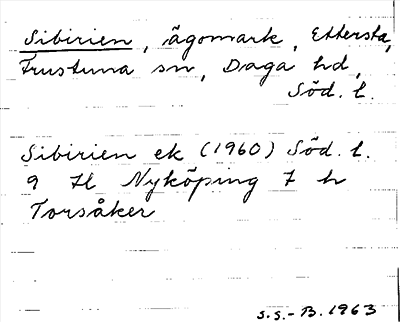 Sibirien, ägomark, Ettersta,
Frustuna sn, Daga hd,
Söd. l.
Sibirien ek (1960) Söd. l.
9 H Nyköping 7 h
Torsåker
S.S.-B. 1963